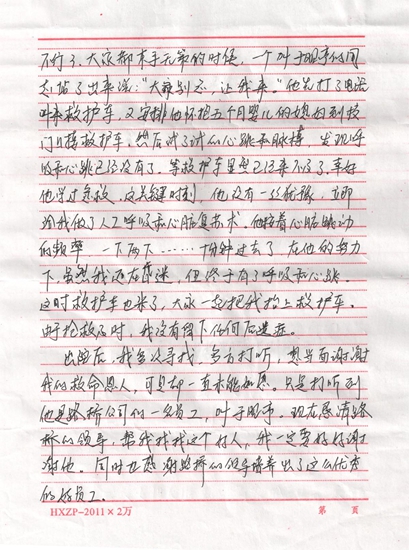 不行了,大家都束手无策的时候,一个叫于
志站了出来说:“大家别忙,让我来。”他先打了电话
叫来救护车,又安排他怀抱五个月婴儿的媳妇到校
门口接救护车,然后试了试的心跳和脉搏,发现呼
吸和心跳已经没有了。等救护车显然已经来不及了,幸好
他学过急救,这关键时刻,他没有一丝犹豫,立即
给我做了人工呼吸和心脏复苏术。他按着心脏跳动
的频率一下两下……十分钟过去了,在他的努力
下,虽然我还在昏迷,但终于有了呼吸和心跳。
这时救护车也来了,大家一起把我抬上救护车。
由于抢救及时,我没有留下任何后遗症。
出院后,我多次寻找,多方打听,想当面谢谢
我的救命恩人,可是却一直未能如愿。只是打听到
他是路桥公司的一名员工,叫于 现在恳请路
桥的领导,帮我找找这个好人,我一定要好好谢
谢他。同时也感谢路桥的领导培养出了这么优秀
的好员工。
HXZP-2011×2万 第 页